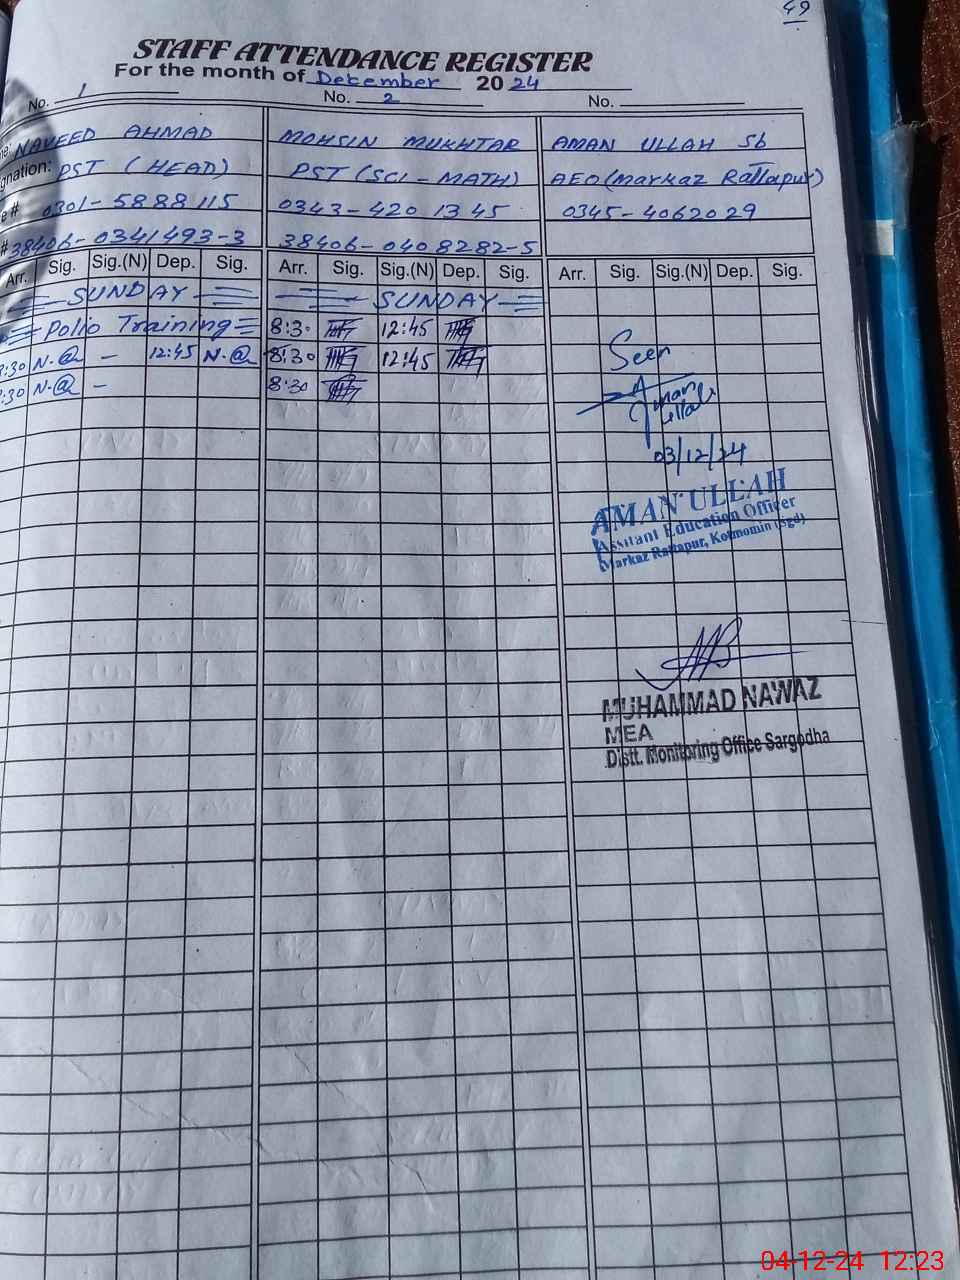 49
STAFF ATTENDANCE REGISTER
For the month of December 2024
No. 1 No. 2 No.
me: NAVEED AHMAD MOHSIN MUKHTAR AMAN ULLAH Sb
gnation: PST (HEAD) PST (SCI-MATH) AEO (Markaz Rattapur)
e # 0301-5888115 0343-4201345 0345-4062029
# 38406-0341493-3 38406-0408282-5
Arr. Sig. Sig.(N) Dep. Sig. Arr. Sig. Sig.(N) Dep. Sig. Arr. Sig. Sig.(N) Dep. Sig.
SUNDAY SUNDAY
Polio Training 8:30 12:45
8:30 N.@ - 12:45 N.@ 8:30 12:45 Seen
8:30 N.@ - 8:30
Aman
ullah
03/12/24
AMAN ULLAH
Assitant Education Officer
Markaz Rattapur, Kotmomin (sgd)
MUHAMMAD NAWAZ
MEA
Distt. Monitoring Office Sargodha
04-12-24 12:23